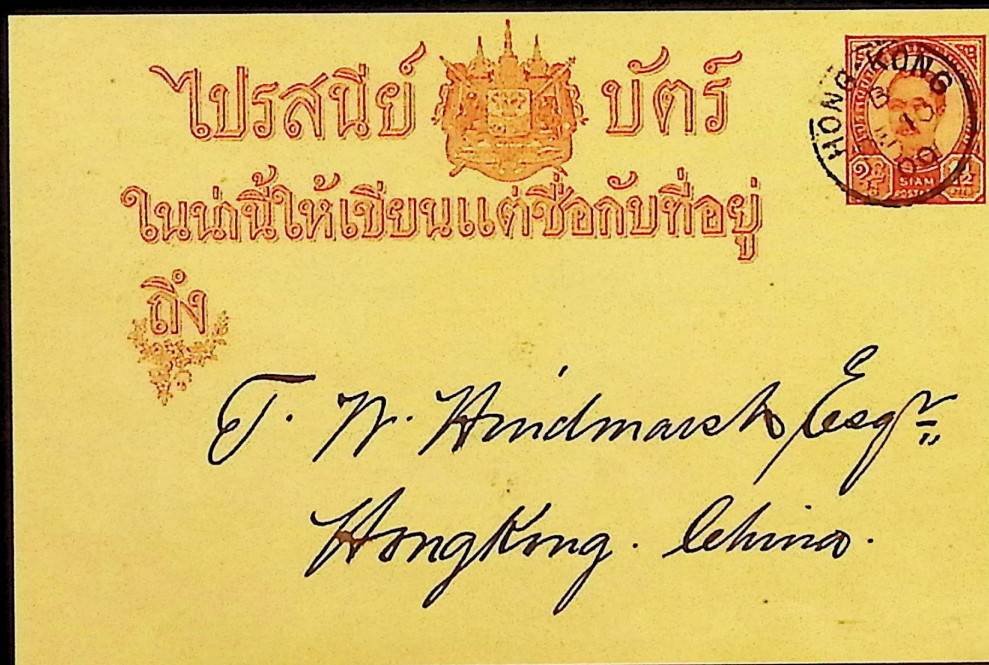 ไปรสนีย์ บัตร์
ในน่านี้ให้เขียนแต่ชื่อกับที่อยู่
ถึง
HONG-KONG
B
10
00
SIAM
T. W. Hindmarsh Esqr
Hongkong. China.